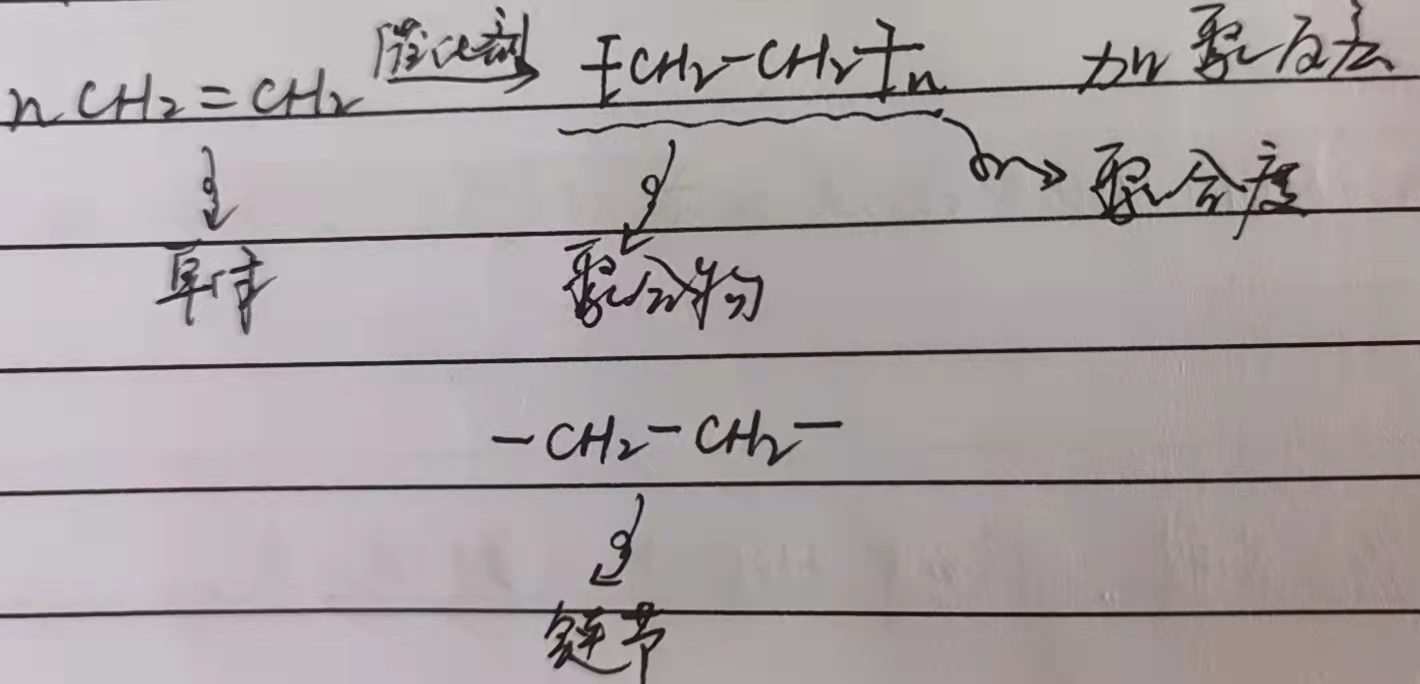 nCH₂=CH₂ 催化剂→ ⁅CH₂-CH₂⁆n 加聚反应
n→聚合度
单体 聚合物
-CH₂-CH₂-
链节